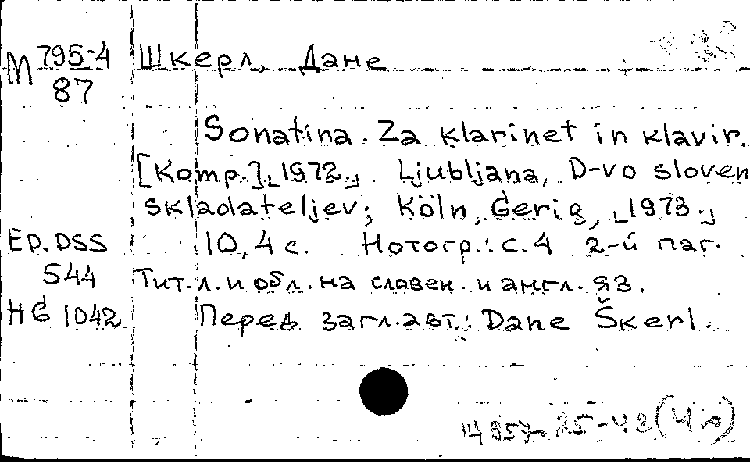 М 795-4 Шкерл, Дане
87
Sonatina. Za klarinet in klavir.
[Komp.] ⌞1972⌟. Ljubljana, D-vo sloven
skladateljev; Köln, Gerig, ⌞1973⌟
ED.DSS 10, 4 с. Нотогр.: с.4 2-й паг.
544 Тит.л. и обл. на словен. и англ. яз.
HG 1042 Перед загл. авт.: Dane Škerl.